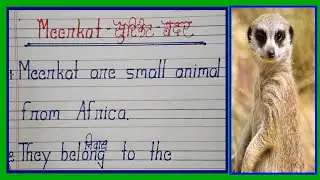 Meerkat - सुरिकेट - बंदर
Meerkat are small animal
from Africa.
निवास
They belong to the